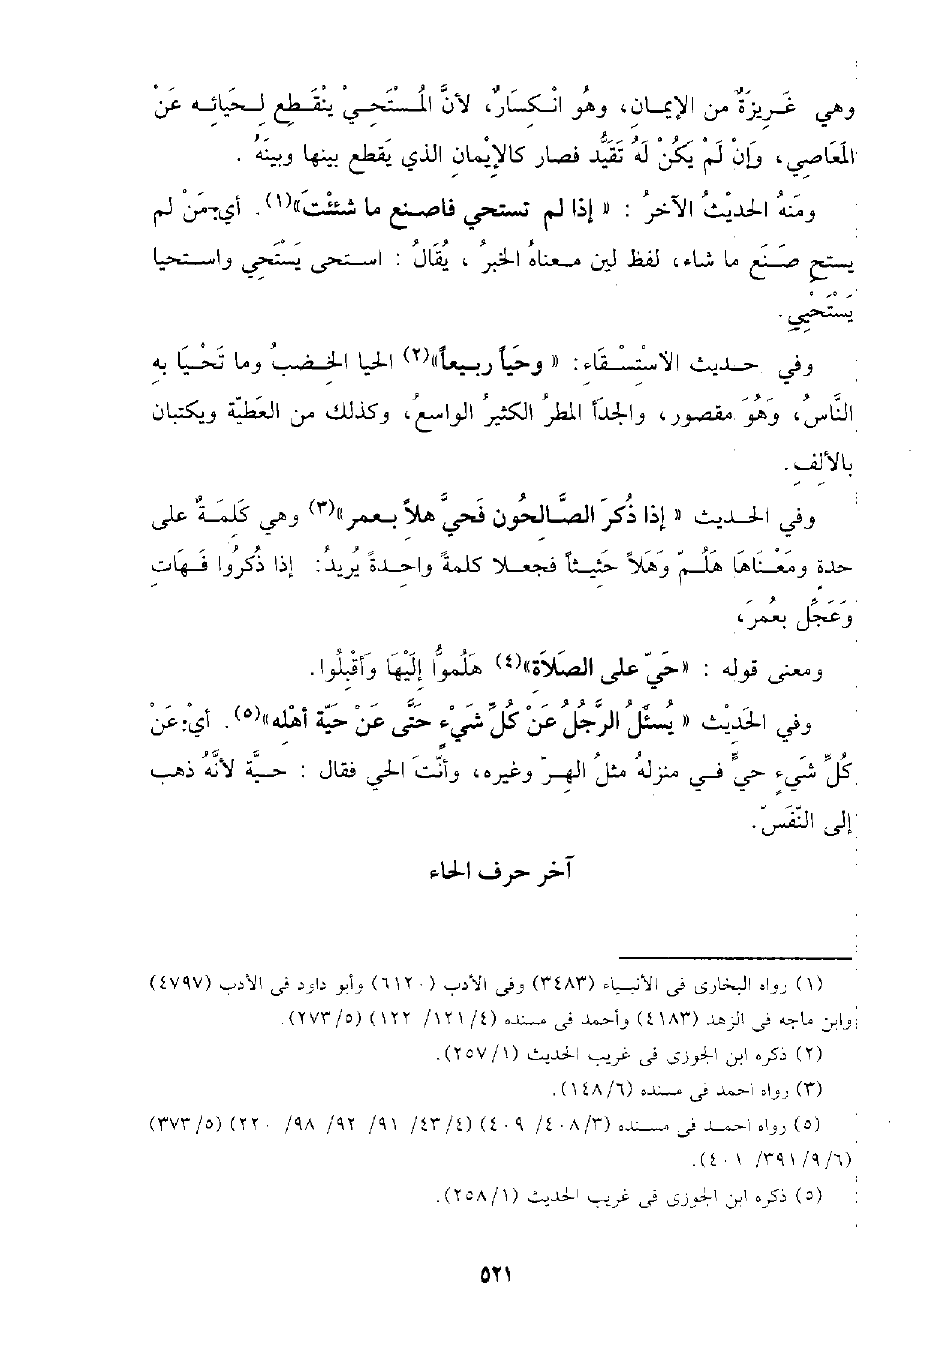 وهي غَريزَةٌ من الإيمان، وهُو انْكِسَارٌ، لأنَّ المُسْتَحيْ ينْقَطع لحَيَائه عَنْ
المَعَاصِي، وَإنْ لَمْ يَكُنْ لَهُ تَقَيُّد فصار كالإيْمان الذي يَقطع بينها وبينَهُ .
ومنَهُ الحديْثُ الآخرُ : « إذا لم تستحي فاصنع ما شئْتَ»(١). أي:مَنْ لم
يستحِ صَنَع ما شاء، لفظ لين معناهُ الخبرُ ، يُقَالُ : استحى يَسْتَحِي واستحيا
يَسْتَحْيِي.
وفي حديث الاسْتِسْقَاء: « وحَياً ربيعاً»(٢) الحيا الخصبُ وما تَحْيَا به
النَّاسُ، وَهُوَ مقصور، والجدَاُ المطرُ الكثيرُ الواسعُ، وكذلك من العَطيّة ويكتبان
بالألفِ.
وفي الحديث « إذا ذُكرَ الصَّالِحُون فَحيَّ هلاً بعمر»(٣) وهي كَلمَةٌ على
حدة ومَعْنَاهَا هَلُمّ وَهَلاً حَثِيثاً فجعلا كلمةً واحدةً يُريدُ: إذا ذُكرُوا فَهَاتِ
وَعَجِّل بعُمرَ،
ومعنى قوله : «حَيّ على الصَّلاَة»(٤) هَلُموُّا إلَيْهَا وَأقْبِلُوا.
وفي الحَديْث « يُسئَلُ الرَّجُلُ عَنْ كُلِّ شَيْءٍ حَتَّى عَنْ حَيَّة أهْله»(٥). أيْ:عَنْ
كُلِّ شَيءٍ حيٍّ في منزلهُ مثلُ الهرّ وغيره، وأنَّثَ الحي فقال : حيَّة لأنَّهُ ذهب
إلى النَّفَسّ.
آخر حرف الحاء
(١) رواه البخارى فى الأنبياء (٣٤٨٣) وفى الأدب (٦١٢٠) وأبو داود فى الأدب (٤٧٩٧)
وابن ماجه فى الزهد (٤١٨٣) وأحمد فى مسنده (٤/ ١٢١/ ١٢٢) (٢٧٣/٥).
(٢) ذكره ابن الجوزى فى غريب الحديث (٢٥٧/١).
(٣) رواه أحمد فى مسنده (١٤٨/٦).
(٥) رواه أحمد فى مسنده (٤٠٨/٣/ ٤٠٩) (٤٣/٤/ ٩١/ ٩٢/ ٩٨/ ٢٢٠) (٣٧٣/٥)
(٩/٦/ ٣٩١/ ٤٠١).
(٥) ذكره ابن الجوزى فى غريب الحديث (٢٥٨/١).
٥٢١